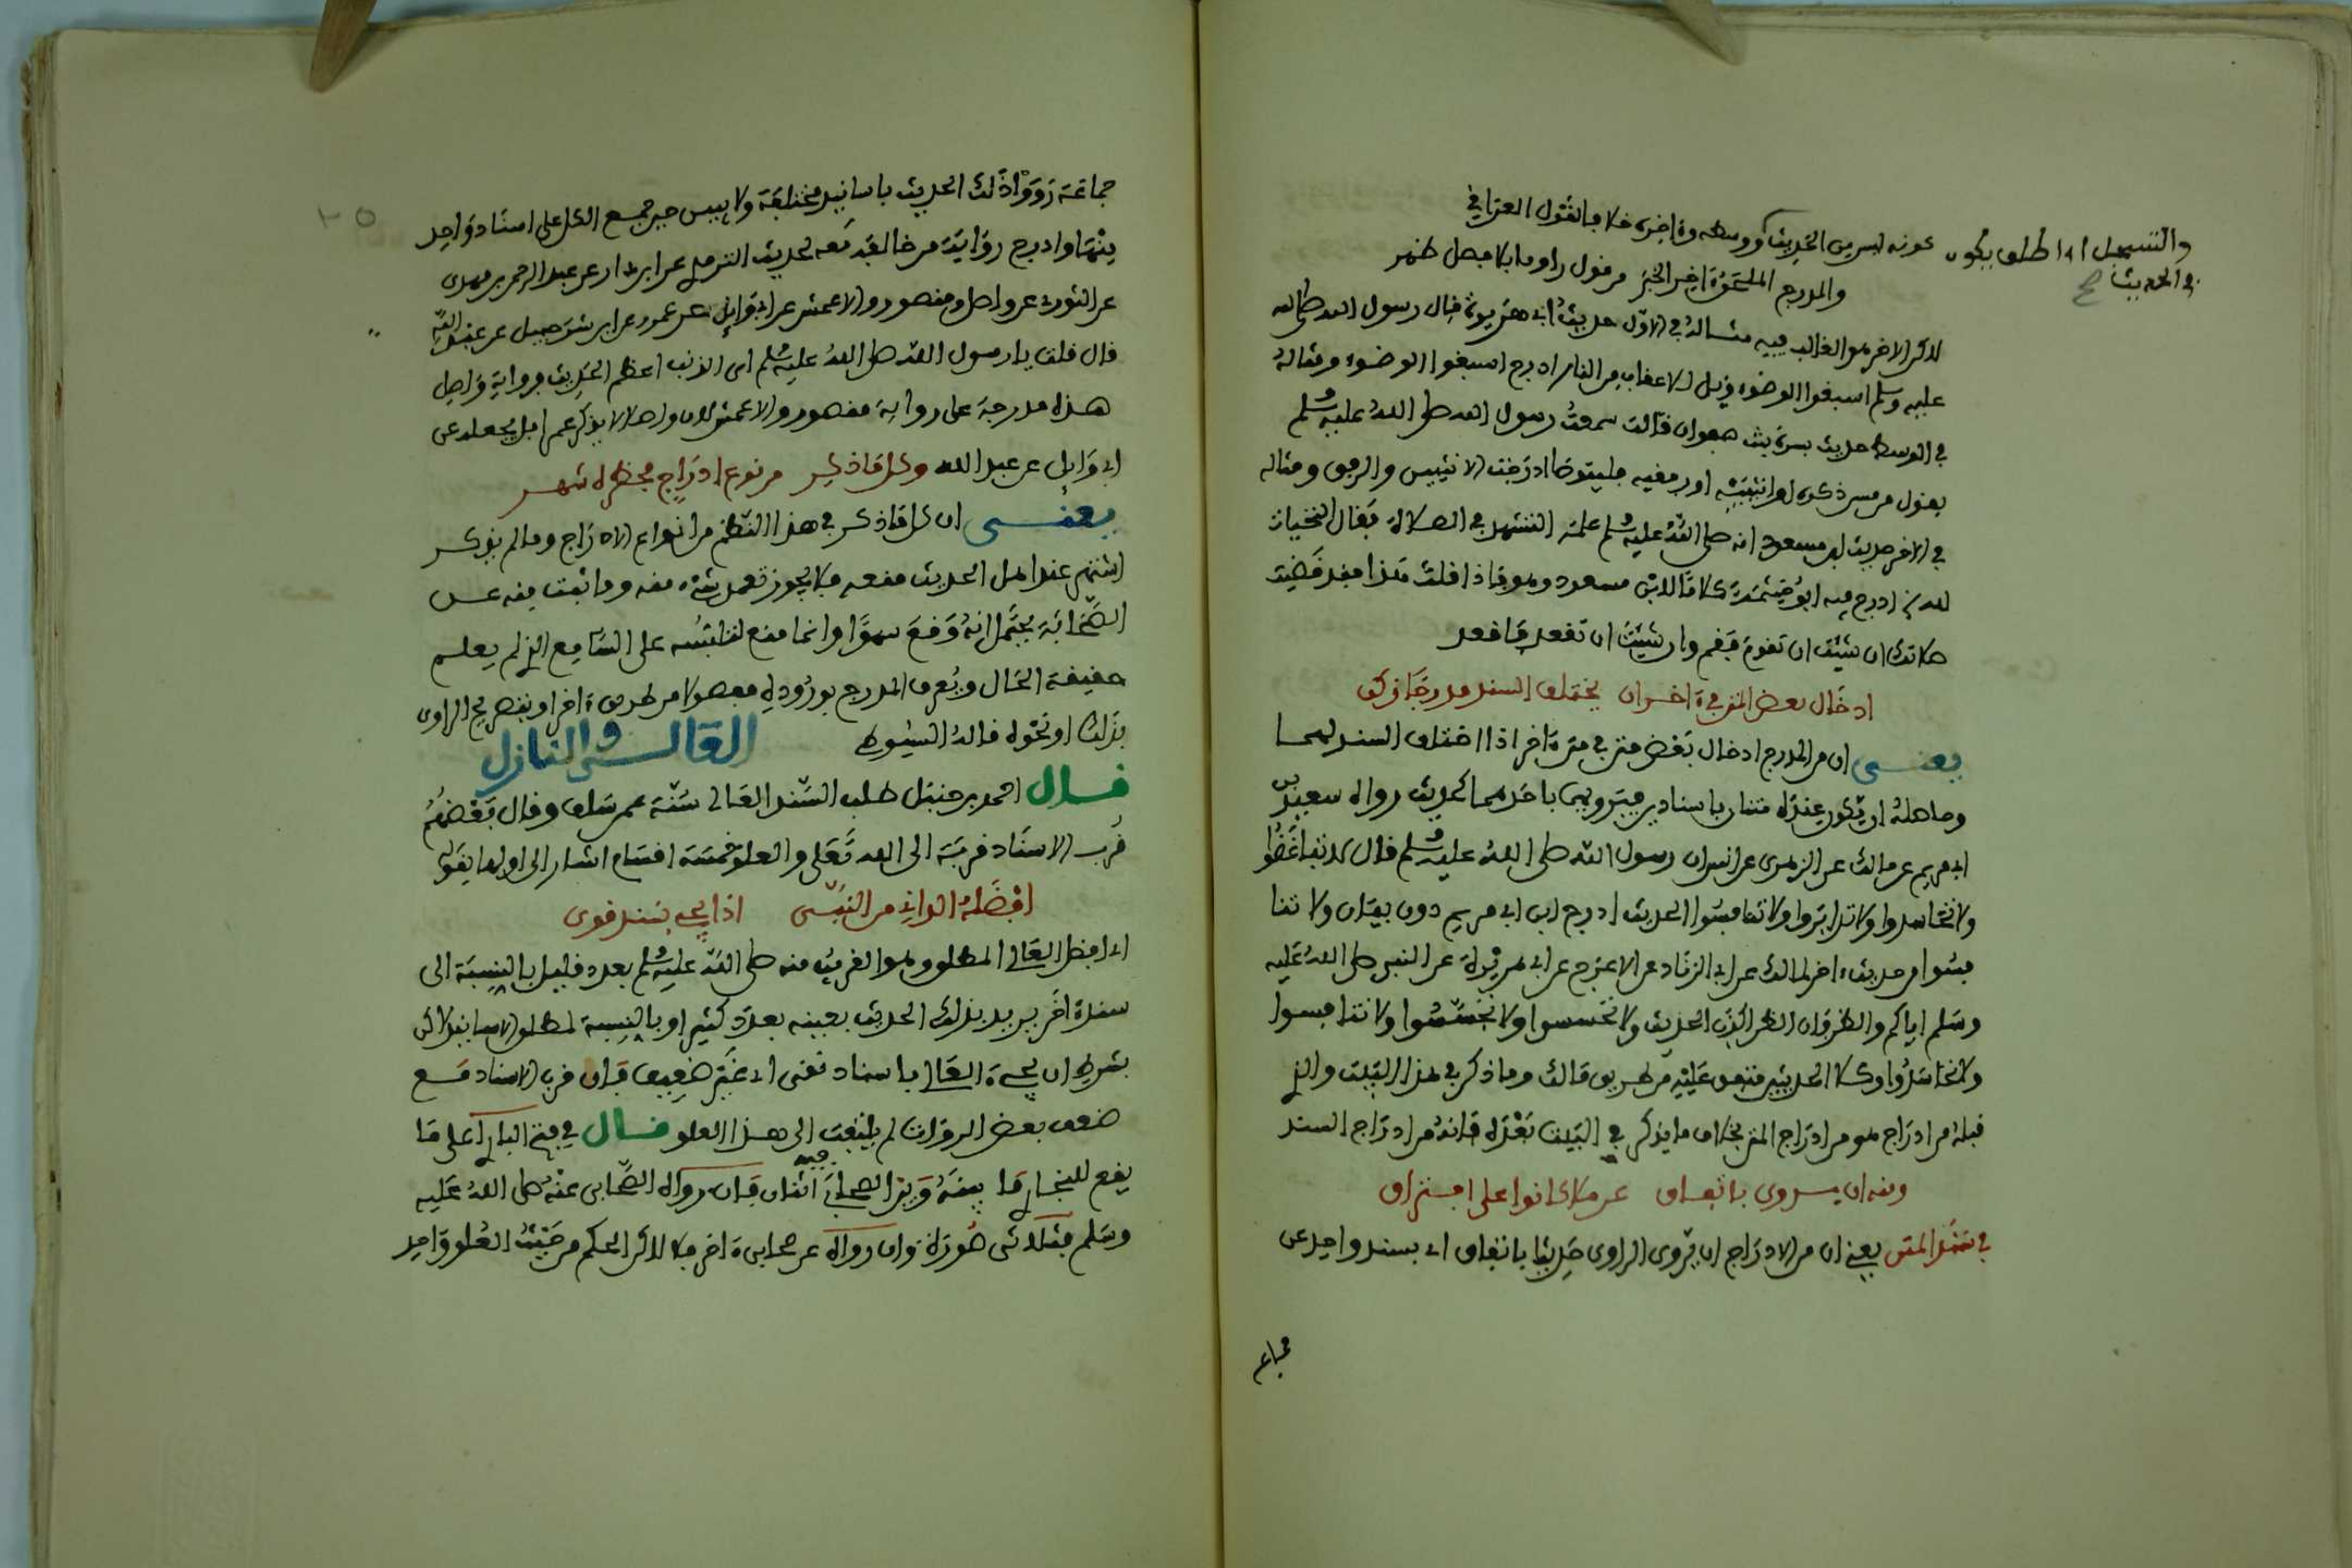 كونه ليس من الحديث كوسطه وءاخره خلافا لقول العراقي
والتسهيل اذا اطلق يكون
في الحديث صح
والمدرج الملحق ءاخر الخبر من قول راو ما بلا فصل ظهر
لاكن الاخر هو الغالب فيه مثاله في الاول حديث ابي هريرة قال رسول الله صلى الله
عليه وسلم اسبغوا الوضوء ويل للاعقاب من النار ادرج اسبغوا الوضوء ومثاله
في الوسط حديث بسرة بنت صفوان قالت سمعت رسول الله صلى الله عليه وسلم
يقول من مس ذكره او انثييه او رفغيه فليتوضا ادرجت الانثيين والرفغ ومثاله
في الاخر حديث ابن مسعود انه صلى الله عليه وسلم علمه التشهد في الصلاة فقال التحيات
لله الخ ادرج فيه ابو خيثمة كلاما لابن مسعود وهو فاذا قلت هذا فقد قضيت
صلاتك ان شئت ان تقوم فقم وان شئت ان تقعد فاقعد
ادخال بعض المتن في ءاخر ان يختلف السند مدرجا زكن
يعني ان من المدرج ادخال بعض متن في متن ءاخر اذا اختلف السند لهما
وحاصله ان يكون عنده متنان باسنادين فيرويهما باحدهما كحديث رواه سعيد بن
ابي مريم عن مالك عن الزهري عن انس ان رسول الله صلى الله عليه وسلم قال لا تباغضوا
ولا تحاسدوا ولا تدابروا ولا تنافسوا الحديث ادرج ابن ابي مريم دون بيان ولا تنا
فسوا من حديث ءاخر لمالك عن ابي الزناد عن الاعرج عن ابي هريرة عن النبي صلى الله عليه
وسلم اياكم والظن فان الظن اكذب الحديث ولا تحسسوا ولا تجسسوا ولا تنافسوا
ولا تحاسدوا وكلا الحديثين متفق عليه من طريق مالك وما ذكر في هذا البيت والذي
قبله من ادراج هو من ادراج المتن بخلاف ما يذكر في البيت بعده فانه من ادراج السند
ومنه ان يروى باتفاق عن ملا كانوا على افتراق
في سند المتن يعني ان من الادراج ان يروى الراوى حديثا باتفاق اى بسند واحد عن
جماعة
جماعة رووا ذلك الحديث باسانيد مختلفة ولا يبين حين جمع الكل على اسناد واحد
منها وادرج رواية من خالفه معه كحديث الترمذي عن ابن بشار عن عبد الرحمن بن مهدى
عن الثورى عن واصل ومنصور والاعمش عن ابي وايل عن عمرو عن ابن شرحبيل عن عبد الله
قال قلت يا رسول الله صلى الله عليه وسلم اى الذنب اعظم الحديث فرواية واصل
هذه مدرجة على رواية منصور والاعمش لان واصلا لا يذكر عمرا بل يجعله عن
ابي وايل عن عبد الله وكل ما ذكر من نوع ادراج فحظره شهر
يعنى ان كل ما ذكر في هذا النظم من انواع الادراج وما لم يذكر
اشتهر عند اهل الحديث منعه فلا يجوز تعمد شىء منه وما ثبت منه عن
الصحابة يحتمل انه وقع سهوا وانما منع لتلبسه على السامع الذي لم يعلم
حقيقة الحال ويعرف المدرج بوروده مفصولا من طريق ءاخر او بتصريح الراوى
بذلك او نحوه قاله السيوطي العالى والنازل
قال احمد بن حنبل طلب السند العالى سنة عمن سلف وقال بعضهم
قرب الاسناد قربة الى الله تعلى والعلو خمسة اقسام اشار الى اولها بقوله
افضله الداني من النبي اذا يجي بسند قوى
اى افضل العالى المطلق وهو القريب منه صلى الله عليه وسلم بعدد قليل بالنسبة الى
سند ءاخر يرد بذلك الحديث بعينه بعدد كثير او بالنسبة لمطلق الاسانيد لاكن
بشرط ان يجىء العالى باسناد نقى اى غير ضعيف فان قرب الاسناد مع
ضعف بعض الروات لم يلتفت الى هذا العلو قال في فتح الباري اعلى ما
يقع للبخاري ما بينه وبين الصحابي فيه اثنان فان رواه الصحابى عنه صلى الله عليه
وسلم فثلاثى صورة وان رواه عن صحابى ءاخر فلا لاكن الحكم من حيث العلو واحد